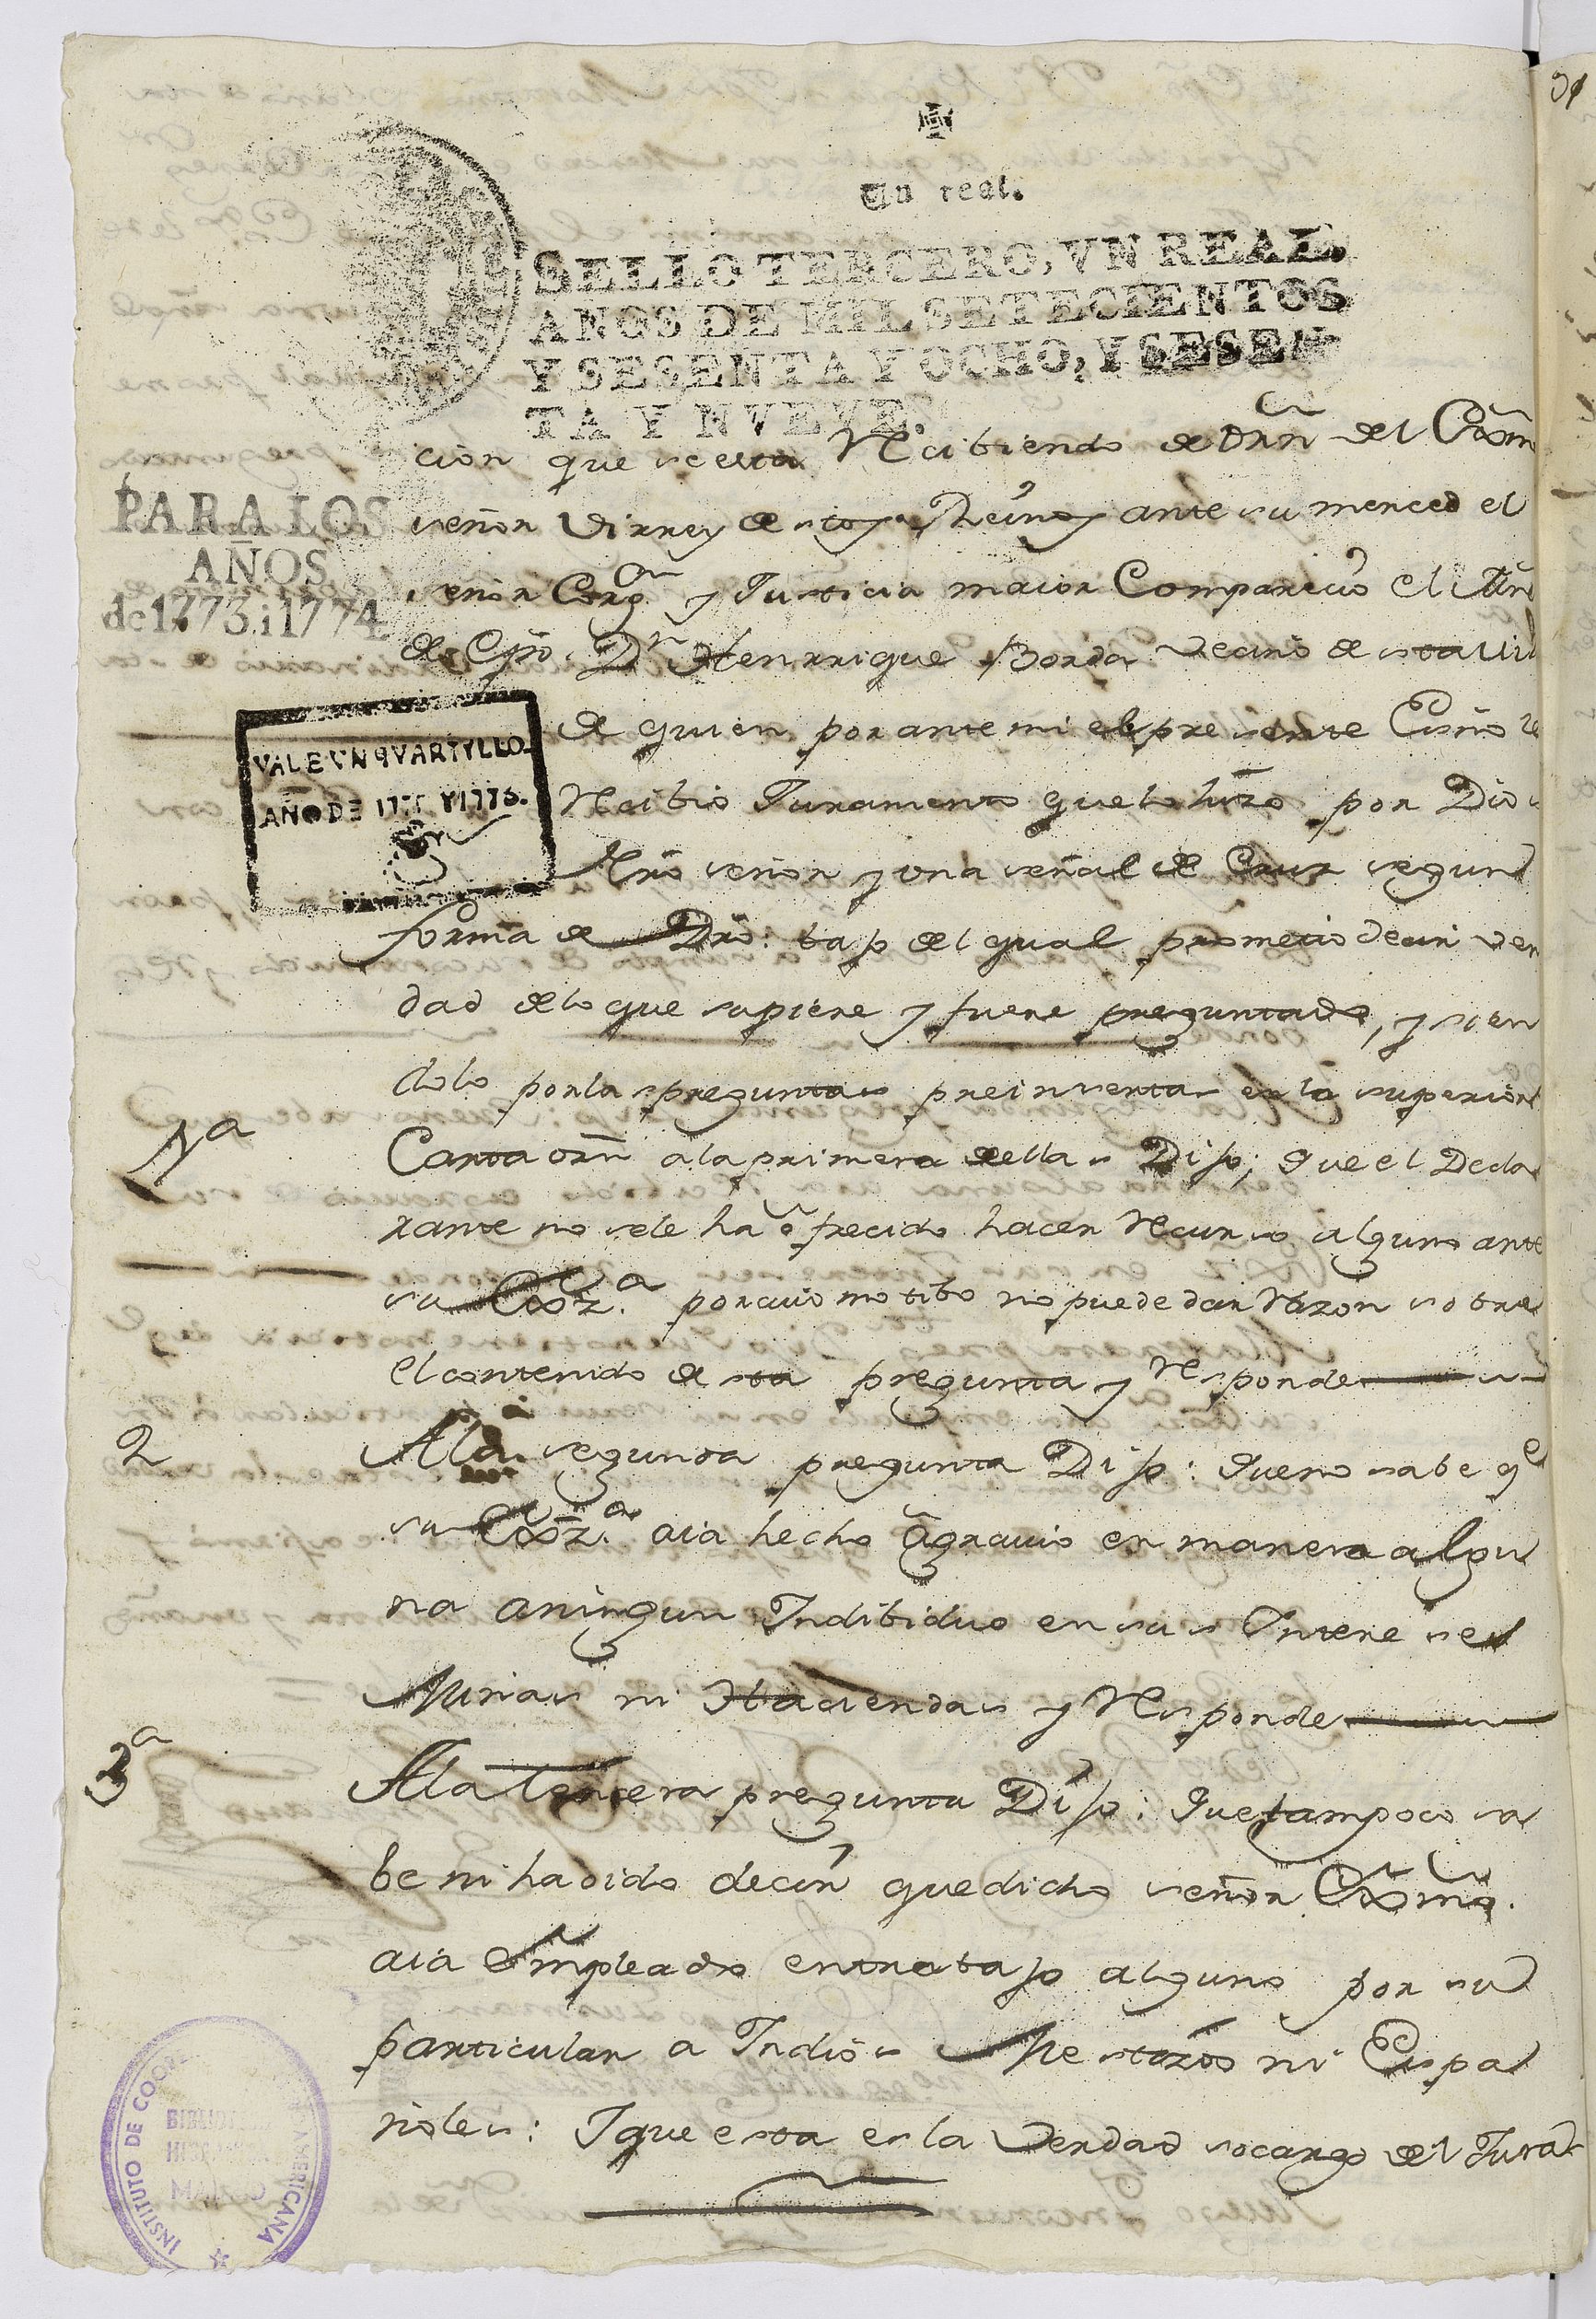 Un real.
SELLO TERCERO, VN REAL.
AÑOS DE MIL SETECIENTOS
Y SESENTA Y OCHO, Y SESEN
TA Y NVEVE.
PARA LOS
AÑOS
de 1773. i 1774
VALE VN QVARTYLLO
AÑO DE 177 Y 1776.
cion que se esta Recibiendo de Orñ del Exm
señor Virrey de estos Reinos ante su merced el
señor Corg.r y Justicia maior Comparecio el
de Exto. Dn Henrrique Borda vecino de esta Vill
de quien por ante mi el presente Essno
Recibio Juramento que lo hizo por Dios
Nro señor y una señal de Cruz segun
forma de Dro: bajo del qual prometio decir ver
dad de lo que supiere y fuere preguntado, y sien
dolo por las preguntas preinsertas en la superior
1a
Carta orñ a la primera dellas Dijo; que el Decla
rante no sele ha ofrecido hacer Recurso alguno ante
su Exz.a por cuio motibo no puede dar Razon sobre
el contenido de esta pregunta y Responde
2
Ala segunda pregunta Dijo: que no sabe qe
su Exz.a aia hecho agravio en manera algu
na a ningun Indibiduo en sus Intereses
Minas ni Haciendas y Responde
3a
Ala tercera pregunta Dijo: que tampoco sa
be ni ha oido decir que dicho señor Exmo.
aia empleado en trabajo alguno por su
particular a Indios Mestizos ni Espa
ñoles: Y que esta es la verdad so cargo del Jura
INSTITUTO DE COOPERACION IBEROAMERICANA
BIBLIOTECA
HISPANICA
MADRID